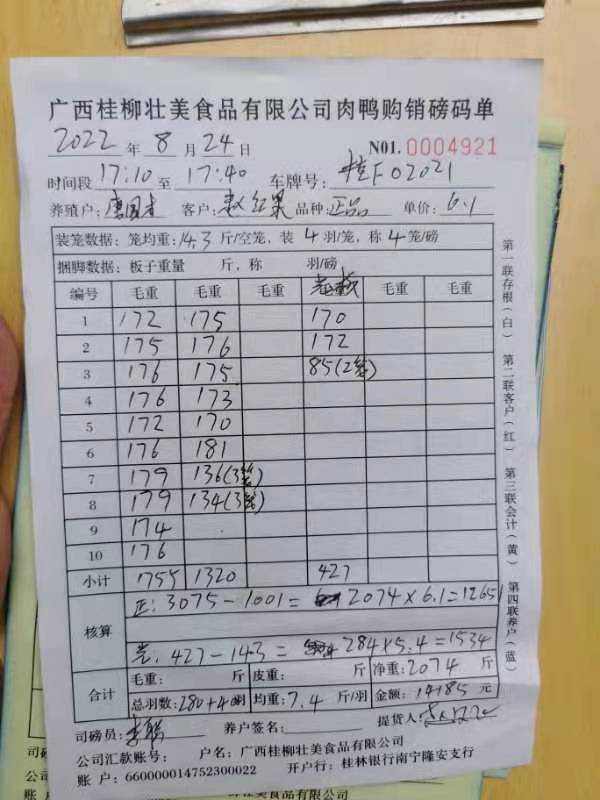 广西桂柳壮美食品有限公司肉鸭购销磅码单
2022 年 8 月 24 日 N01. 0004921
时间段 17:10 至 17:40 车牌号: 桂F02021
养殖户: 客户: 赵红果 品种: 正品 单价: 6.1
装笼数据: 笼均重: 14.3 斤/空笼, 装 4 羽/笼, 称 4 笼/磅
捆脚数据: 板子重量 斤, 称 羽/磅
编号 毛重 毛重 毛重 毛重 毛重
1 172 175 170
2 175 176 172
3 176 175 85(2笼)
4 176 173
5 172 170
6 176 181
7 179 136(3笼)
8 179 134(3笼)
9 174
10 176
小计 1755 1320 427
正: 3075-1001= 2074×6.1=12651
核算
427-143= 284×5.4=1534
合计 毛重: 斤 皮重: 斤 净重: 2074 斤
总羽数: 280+40羽 均重: 7.4 斤/羽 金额: 14185 元
司磅员: 养户签名: 提货人:
公司汇款账号: 户名: 广西桂柳壮美食品有限公司
账 户: 660000014752300022 开户行: 桂林银行南宁隆安支行
第一联存根(白) 第二联客户(红) 第三联会计(黄) 第四联养户(蓝)
司磅员
公司汇款账号: 户名: 广西桂柳壮美食品有限公司
账 户